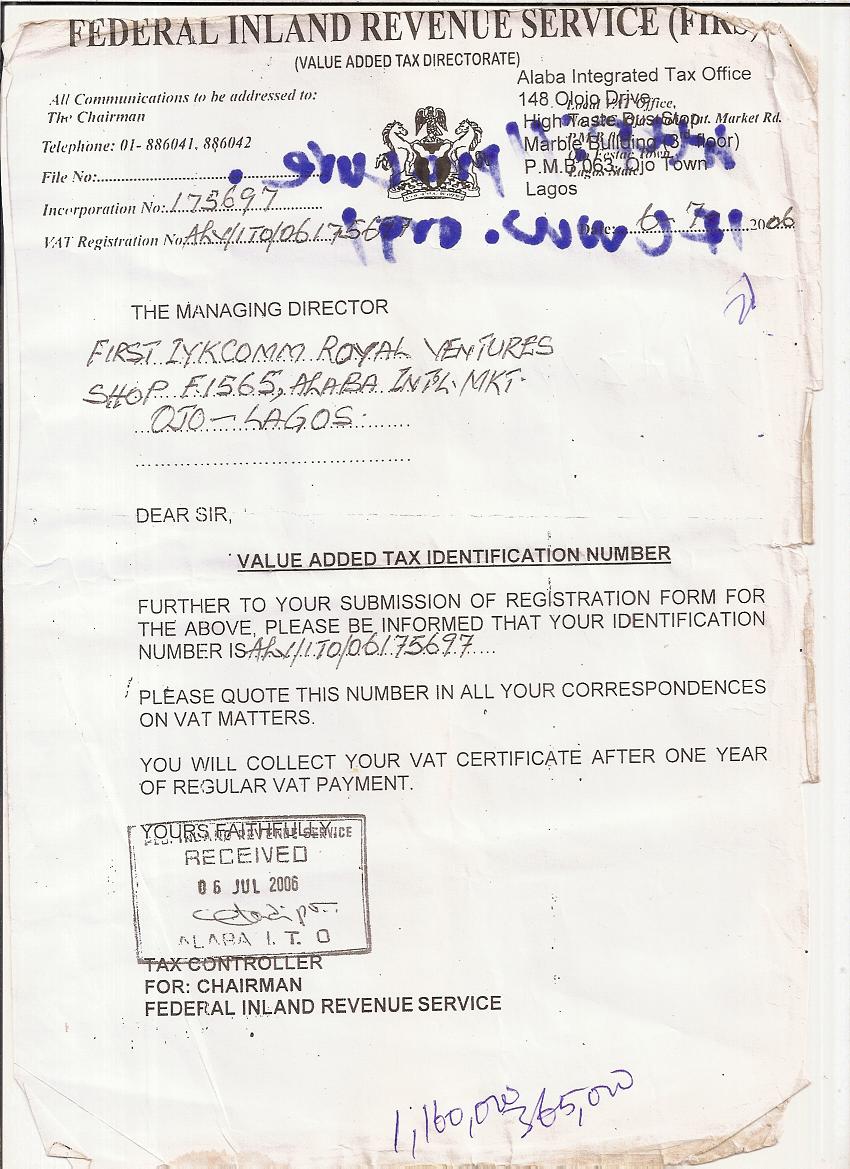 FEDERAL INLAND REVENUE SERVICE (FIRS)
(VALUE ADDED TAX DIRECTORATE)
All Communications to be addressed to:
The Chairman
Telephone: 01- 886041, 886042
File No:
Incorporation No: 175697
VAT Registration No ALV/ITO/06175697
Alaba Integrated Tax Office
148 Olojo Drive
High Taste Bus Stop
Marble Building (3rd floor)
P.M.B 063, Ojo Town
Lagos
Local VAT Office,
Int. Market Rd.
Lagos State
Date: 6 - 7 2006
THE MANAGING DIRECTOR
FIRST IYKCOMM ROYAL VENTURES
SHOP F1565, ALABA INT'L. MKT.
OJO - LAGOS.
DEAR SIR,
VALUE ADDED TAX IDENTIFICATION NUMBER
FURTHER TO YOUR SUBMISSION OF REGISTRATION FORM FOR
THE ABOVE, PLEASE BE INFORMED THAT YOUR IDENTIFICATION
NUMBER IS ALV/ITO/06175697
PLEASE QUOTE THIS NUMBER IN ALL YOUR CORRESPONDENCES
ON VAT MATTERS.
YOU WILL COLLECT YOUR VAT CERTIFICATE AFTER ONE YEAR
OF REGULAR VAT PAYMENT.
YOURS FAITHFULLY
FED. INLAND REVENUE SERVICE
RECEIVED
06 JUL 2006
ALABA I. T. O
TAX CONTROLLER
FOR: CHAIRMAN
FEDERAL INLAND REVENUE SERVICE
1,160,000 365,000